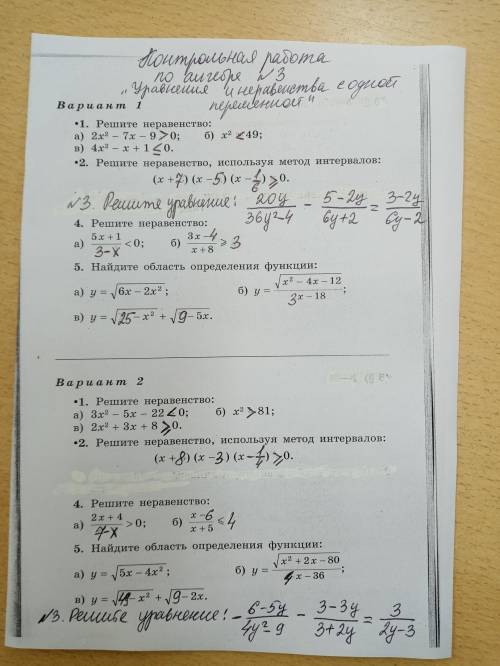 Контрольная работа
по алгебре №3
"Уравнения и неравенства с одной
переменной"
Вариант 1
•1. Решите неравенство:
а) 2x² − 7x − 9 > 0; б) x² < 49;
в) 4x² − x + 1 ≤ 0.
•2. Решите неравенство, используя метод интервалов:
(x + 7) (x − 5) (x − 1/6) ≥ 0.
№3. Решите уравнение: 20y/(36y² − 4) − (5 − 2y)/(6y + 2) = (3 − 2y)/(6y − 2)
4. Решите неравенство:
а) (5x + 1)/(3 − x) < 0; б) (3x − 4)/(x + 8) ≥ 3
5. Найдите область определения функции:
а) y = √(6x − 2x²); б) y = √(x² − 4x − 12)/(3x − 18);
в) y = √(25 − x²) + √(9 − 5x).
Вариант 2
•1. Решите неравенство:
а) 3x² − 5x − 22 < 0; б) x² > 81;
в) 2x² + 3x + 8 > 0.
•2. Решите неравенство, используя метод интервалов:
(x + 8) (x − 3) (x − 1/4) ≥ 0.
4. Решите неравенство:
а) (2x + 4)/(7 − x) > 0; б) (x − 6)/(x + 5) ≤ 4
5. Найдите область определения функции:
а) y = √(5x − 4x²); б) y = √(x² + 2x − 80)/(4x − 36);
в) y = √(49 − x²) + √(9 − 2x).
№3. Решите уравнение: − (6 − 5y)/(4y² − 9) − (3 − 3y)/(3 + 2y) = 3/(2y − 3)